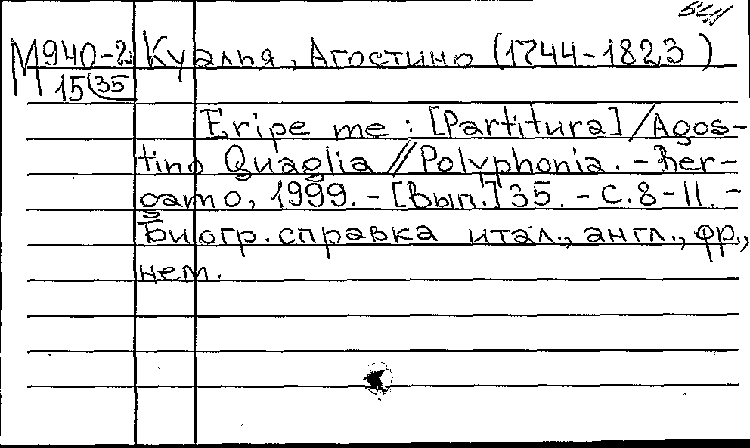 М940-2 Куалья, Агостино (1744-1823)
15(35
Eripe me : [Partitura] / Agos-
tino Quaglia // Polyphonia. - Ber-
gamo, 1999. - [Вып.] 35. - С. 8-11. -
Биогр. справка итал., англ., фр.,
нем.